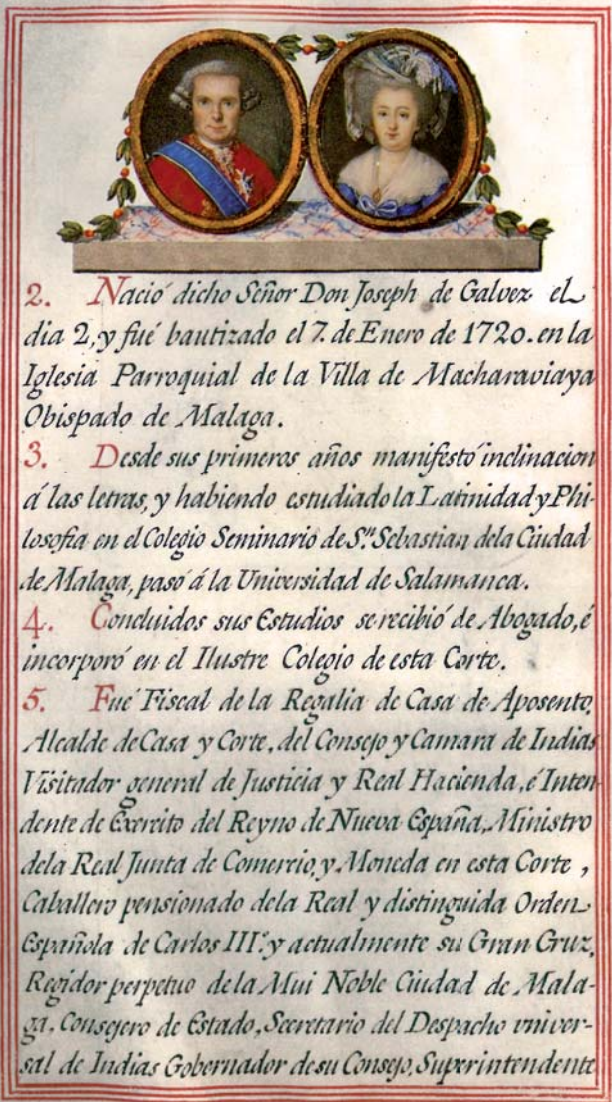 2. Nació dicho Señor Don Joseph de Galvez el
dia 2, y fué bautizado el 7. de Enero de 1720. en la
Iglesia Parroquial de la Villa de Macharaviaya
Obispado de Malaga.
3. Desde sus primeros años manifestó inclinacion
á las letras, y habiendo estudiado la Latinidad y Phi-
losofia en el Colegio Seminario de S.n Sebastian dela Ciudad
de Malaga, pasó á la Universidad de Salamanca.
4. Concluidos sus Estudios se recibió de Abogado, é
incorporó en el Ilustre Colegio de esta Corte.
5. Fué Fiscal de la Regalia de Casa de Aposento,
Alcalde de Casa y Corte, del Consejo y Camara de Indias
Visitador general de Justicia y Real Hacienda, é Inten-
dente de Exercito del Reyno de Nueva España, Ministro
dela Real Junta de Comercio, y Moneda en esta Corte,
Caballero pensionado dela Real y distinguida Orden
Española de Carlos III.º y actualmente su Gran Cruz,
Regidor perpetuo de la Mui Noble Ciudad de Mala-
ga, Consejero de Estado, Secretario del Despacho vniver-
sal de Indias Gobernador de su Consejo, Superintendente